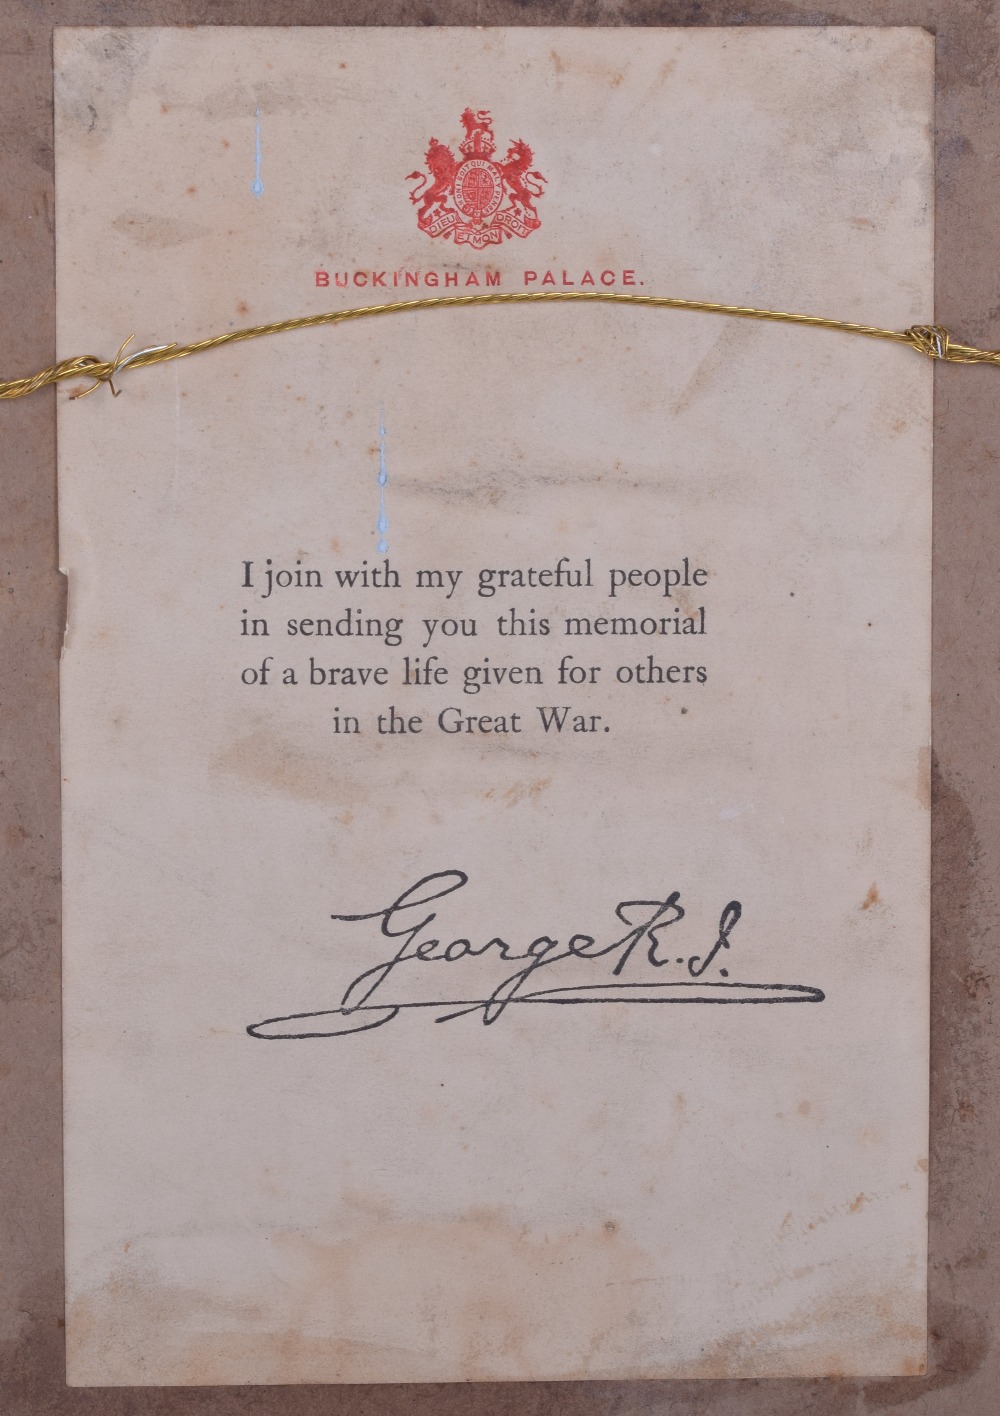 HONI SOIT QUI MAL Y PENSE
DIEU ET MON DROIT
BUCKINGHAM PALACE.
I join with my grateful people
in sending you this memorial
of a brave life given for others
in the Great War.
George R.I.